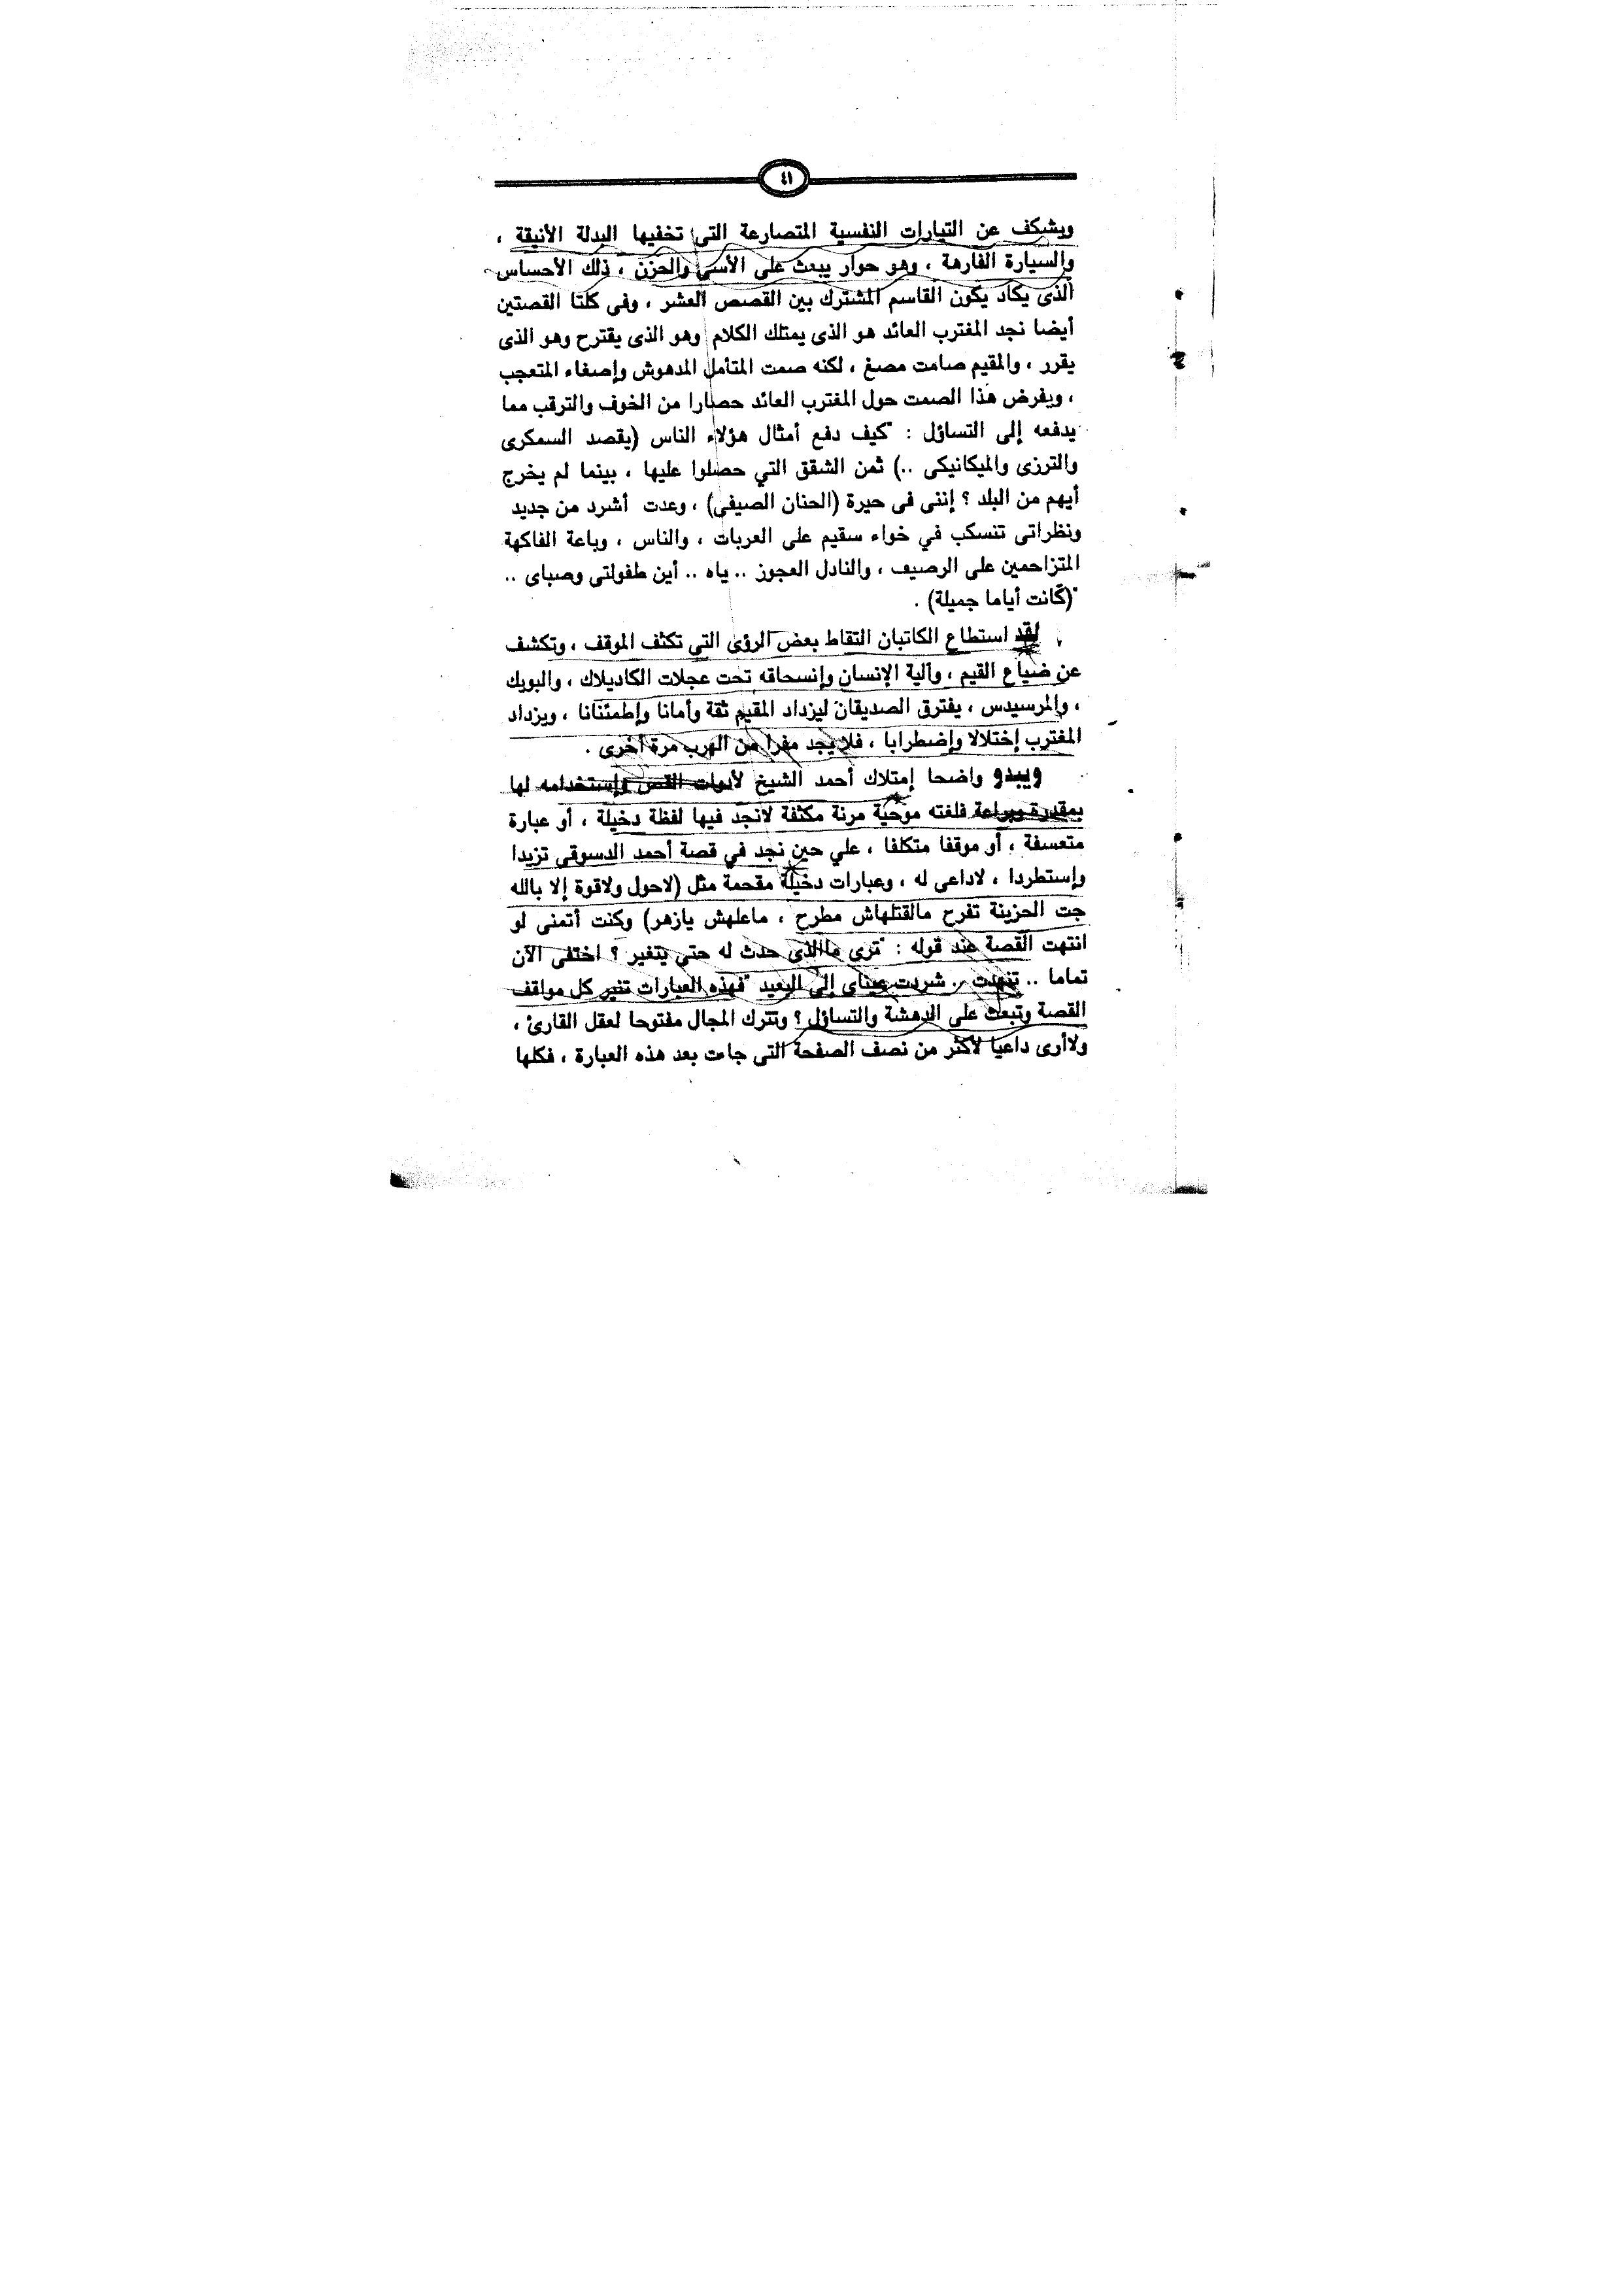 ٤١
ويشكف عن التيارات النفسية المتصارعة التى تخفيها البدلة الأنيقة ،
والسيارة الفارهة ، وهو حوار يبعث على الأسى والحزن ، ذلك الأحساس
الذى يكاد يكون القاسم المشترك بين القصص العشر ، وفى كلتا القصتين
أيضا نجد المغترب العائد هو الذى يمتلك الكلام وهو الذى يقترح وهو الذى
يقرر ، والمقيم صامت مصغ ، لكنه صمت المتأمل المدهوش وإصغاء المتعجب
، ويفرض هذا الصمت حول المغترب العائد حصارا من الخوف والترقب مما
يدفعه إلى التساؤل : "كيف دفع أمثال هؤلاء الناس (يقصد السمكرى
والترزى والميكانيكى ..) ثمن الشقق التي حصلوا عليها ، بينما لم يخرج
أيهم من البلد ؟ إننى فى حيرة (الحنان الصيفى) ، وعدت أشرد من جديد
ونظراتى تنسكب في خواء سقيم على العربات ، والناس ، وباعة الفاكهة
المتزاحمين على الرصيف ، والنادل العجوز .. ياه .. أين طفولتى وصباى ..
"(كانت أياما جميلة) .
لقد استطاع الكاتبان التقاط بعض الرؤى التي تكثف الموقف ، وتكشف
عن ضياع القيم ، وآلية الإنسان وإنسحاقه تحت عجلات الكاديلاك ، والبويك
، والمرسيدس ، يفترق الصديقان ليزداد المقيم ثقة وأمانا وإطمئنانا ، ويزداد
المغترب إختلالا وإضطرابا ، فلا يجد مفرا من الهرب مرة أخرى .
ويبدو واضحا إمتلاك أحمد الشيخ لأدوات القص وإستخدامه لها
بمقدرة وبراعة فلغته موحية مرنة مكثفة لانجد فيها لفظة دخيلة ، أو عبارة
متعسفة ، أو موقفا متكلفا ، علي حين نجد في قصة أحمد الدسوقى تزيدا
وإستطردا ، لاداعى له ، وعبارات دخيلة مقحمة مثل (لاحول ولاقوة إلا بالله
جت الحزينة تفرح مالقتلهاش مطرح ، ماعلهش يازهر) وكنت أتمنى لو
انتهت القصة عند قوله : "ترى ماالذى حدث له حتى يتغير ؟ اختفى الآن
تماما .. تنهدت .. شردت عيناى إلى البعيد "فهذه العبارات تنير كل مواقف
القصة وتبعث على الدهشة والتساؤل ؟ وتترك المجال مفتوحا لعقل القارئ ،
ولاأرى داعيا لأكثر من نصف الصفحة التى جاءت بعد هذه العبارة ، فكلها